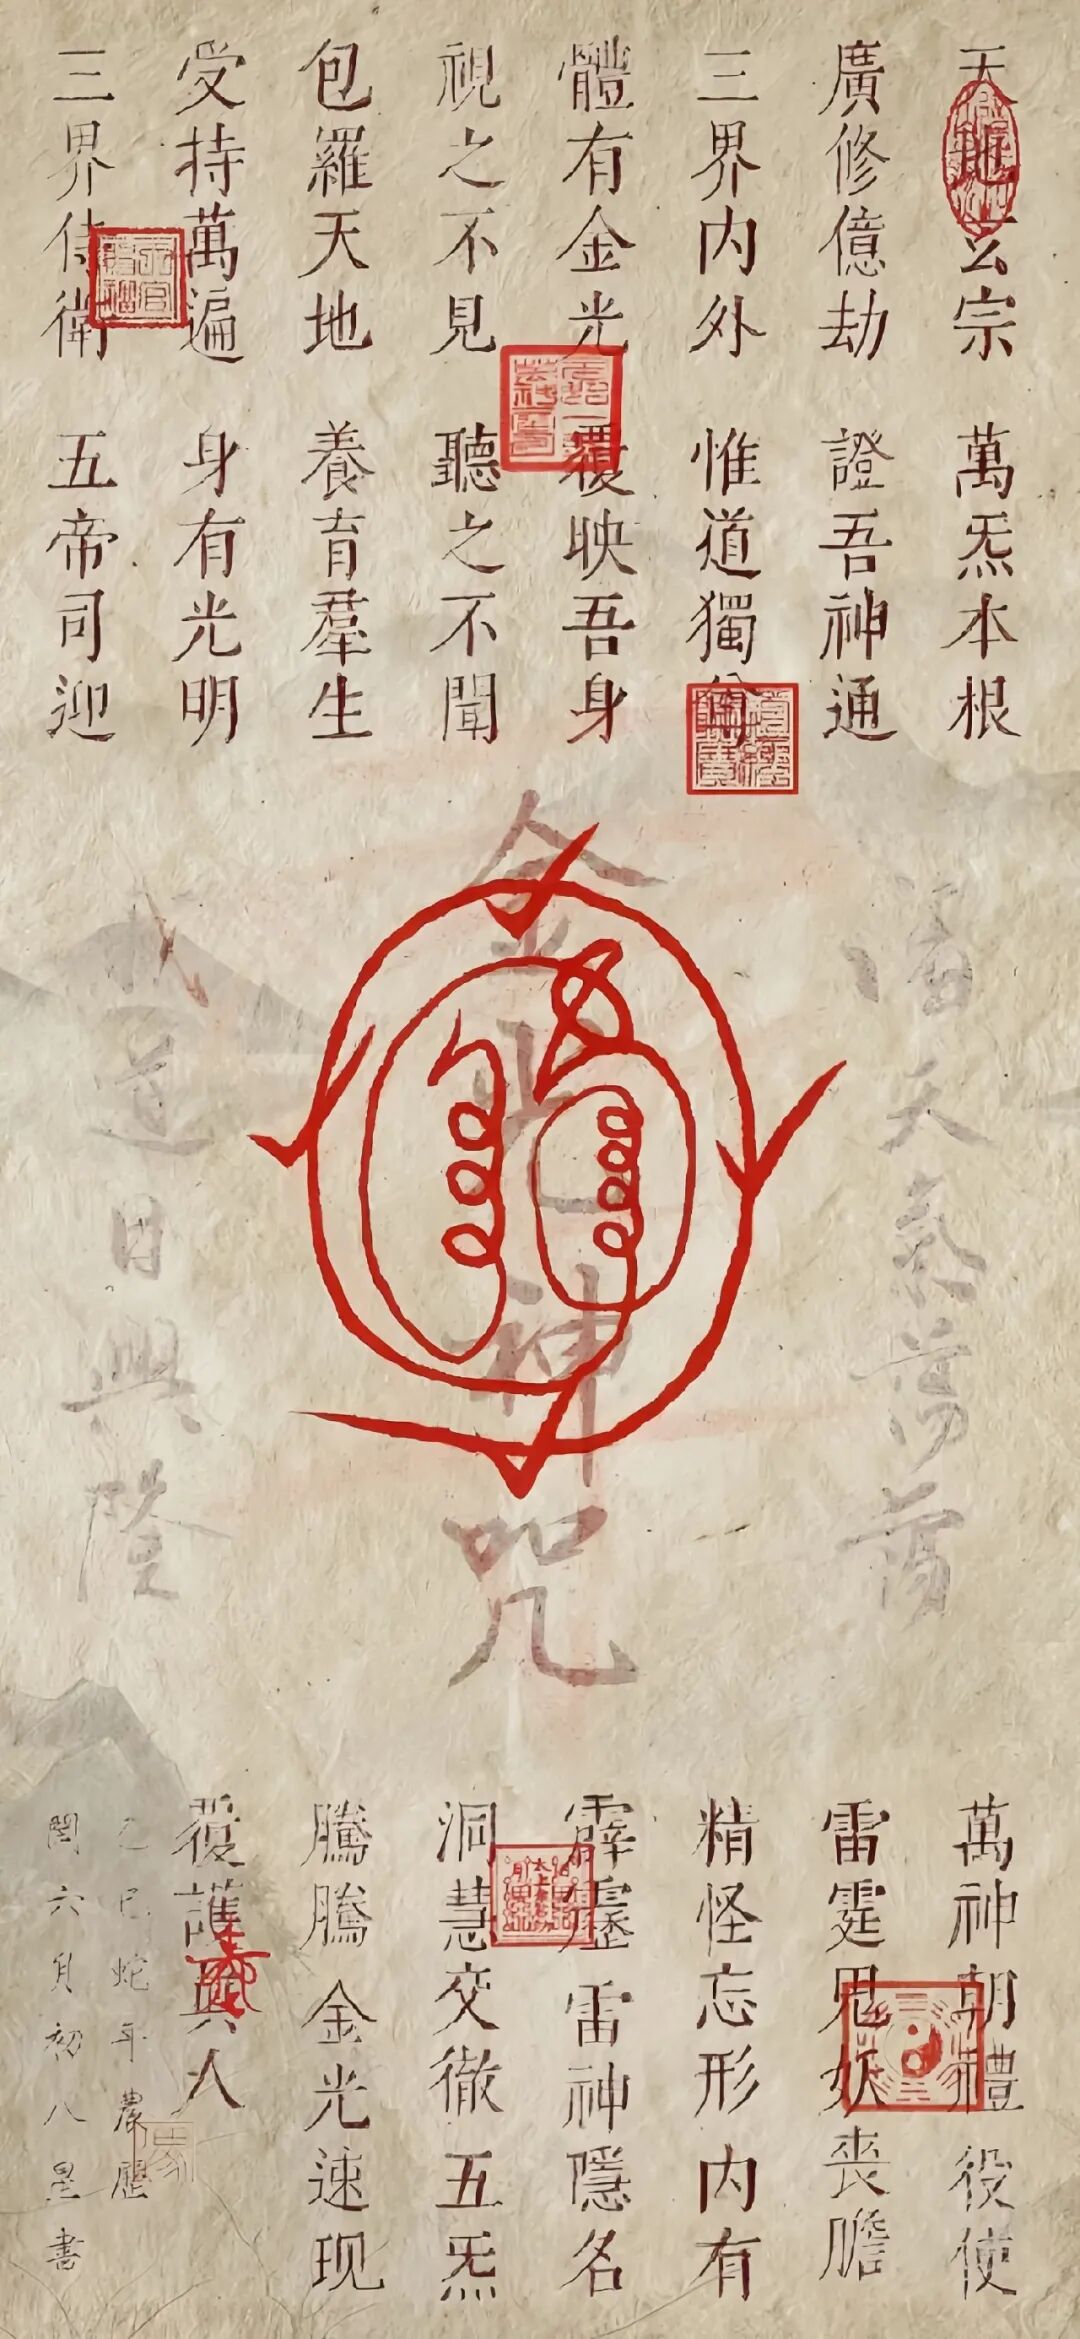 天地玄宗 萬炁本根
廣修億劫 證吾神通
三界内外 惟道獨尊
體有金光 覆映吾身
視之不見 聽之不聞
包羅天地 養育羣生
受持萬遍 身有光明
三界侍衛 五帝司迎
天氣蕩蕩
金光神咒
我道日興隆
萬神朝禮 役使
雷霆鬼妖喪膽
精怪忘形 内有
霹靂 雷神隱名
洞慧交徹 五炁
騰騰 金光速现
覆護真人
乙巳蛇年農曆
閏六月初八星書